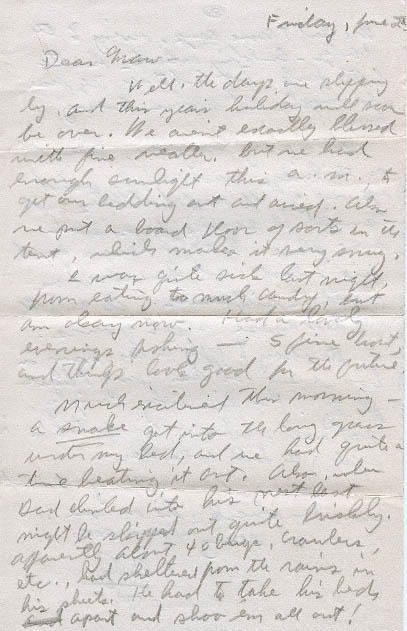 Friday, June 2
Dear Maw -
Well, the days are slipping
by, and this years holiday will soon
be over. We arent exactly blessed
with fine weather, but we had
enough sunlight this a.m. to
get our bedding out and aired. Also
we put a board floor of sorts in the
tent, which makes it very snug.
I was quite sick last night,
from eating too much candy, but
am okay now. Had a lovely
evenings fishing — 5 fine trout,
and things look good for the future.
Much excitement this morning -
a snake got into the long grass
under my bed, and we had quite a
time beating it out. Also, when
Dad climbed into his nest last
night he slipped out quite briskly.
apparently about 40 bugs, crawlers,
etc., had sheltered from the rains in
his sheets. He had to take his beds
apart and shoo em all out!